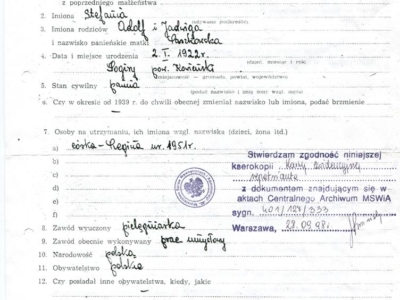 z poprzedniego małżeństwa
2. Imiona Stefania
3. Imiona rodziców Adolf i Jadwiga
i nazwisko panieńskie matki
4. Data i miejsce urodzenia 2. I. 1922 r.
(dzień, miesiąc i rok)
pow. Koniński
5. Stan cywilny panna
(podać nazwisko i imię żony wzgl. męża)
6. Czy w okresie od 1939 r. do chwili obecnej zmieniał nazwisko lub imiona, podać brzmienie
—
7. Osoby na utrzymaniu, ich imiona wzgl. nazwiska (dzieci, żona itd.)
a) córka - Regina ur. 1951 r.
b)
c)
d)
e)
f)
Stwierdzam zgodność niniejszej
kserokopii
z dokumentem znajdującym się w
aktach Centralnego Archiwum MSWiA
sygn. 401/187/333
Warszawa, 28.09.98 r.
8. Zawód wyuczony pielęgniarka
9. Zawód obecnie wykonywany prac umysłowy
10. Narodowość polska
11. Obywatelstwo polska
12. Czy posiadał inne obywatelstwa, kiedy, jakie
—